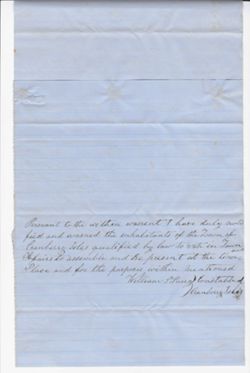 Pursuant to the within warrant I have duly noti
fied and warned the inhabitants of the Town of
Cranberry Isles qualified by law to vote in Town
affairs to assemble and be present at the time
Place and for the purposes within mentioned
William Constable
Cranberry Isles